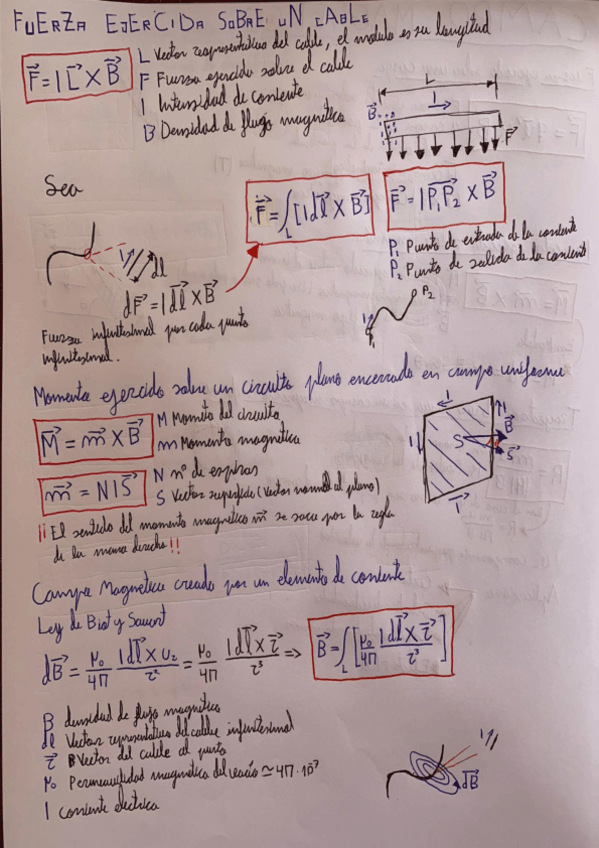 FUERZA EJERCIDA SOBRE UN CABLE
F⃗ = I L⃗ X B⃗
L Vector representativo del cable, el modulo es su longitud
F Fuerza ejercida sobre el cable
I Intensidad de corriente
B Densidad de flujo magnético
L
I
B⃗
F⃗
Sea
I
dl
dF⃗ = I dl⃗ X B⃗
Fuerza infinitesimal por cada punto
infinitesimal.
F⃗ = ∫L [I dl⃗ X B⃗]
F⃗ = I P₁P₂ X B⃗
P₁ Punto de entrada de la corriente
P₂ Punto de salida de la corriente
P₂
I
P₁
Momento ejercido sobre un circuito plano encerrado en campo uniforme
M⃗ = m⃗ X B⃗
M Momento del circuito
m Momento magnético
m⃗ = N I S⃗
N nº de espiras
S Vector superficie (Vector normal al plano)
I
I
I
I
S
B⃗
S⃗
¡¡El sentido del momento magnético m⃗ se saca por la regla
de la mano derecha!!
Campo Magnetico creado por un elemento de corriente
Ley de Biot y Savart
dB⃗ = μ₀/4π I dl⃗ X u₂/r² = μ₀/4π I dl⃗ X r⃗/r³ => B⃗ = ∫L [μ₀/4π I dl⃗ X r⃗/r³]
B densidad de flujo magnético
dl Vector representativo del cable infinitesimal
r⃗ Vector del cable al punto
μ₀ Permeabilidad magnética del vacío ≃ 4π·10⁻⁷
I corriente electrica
I
dB⃗